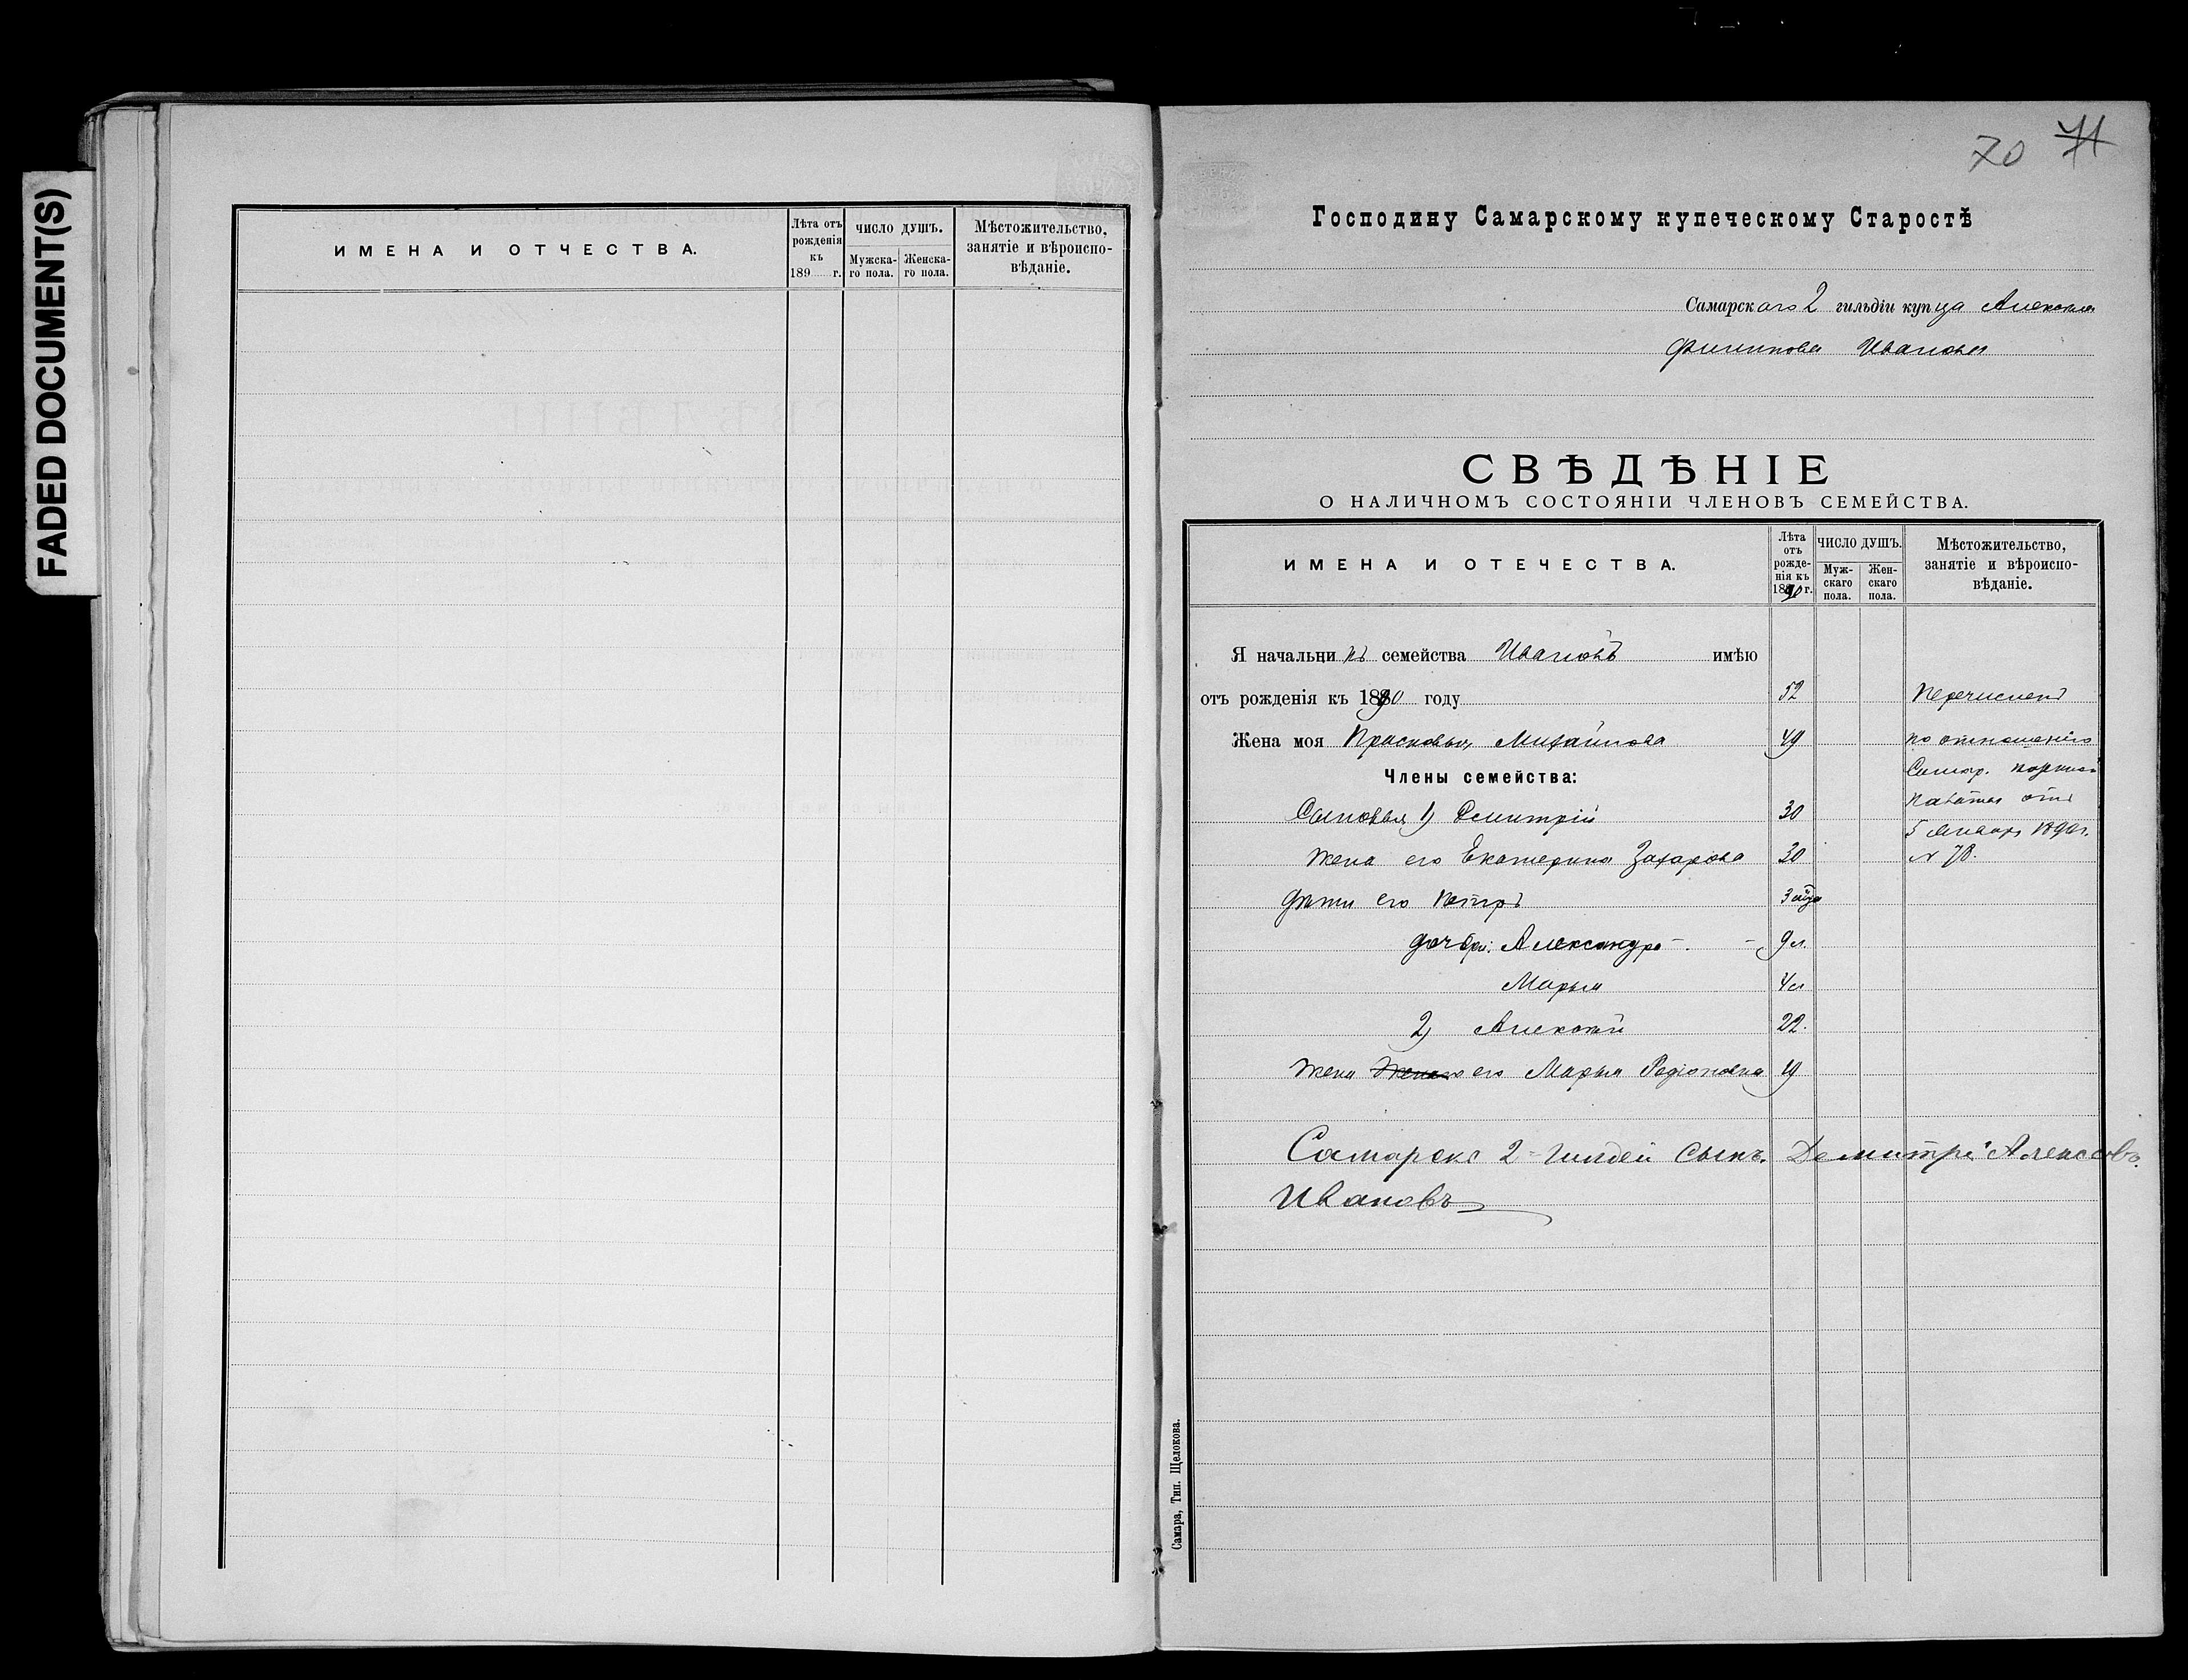 FADED DOCUMENT(S)
ИМЕНА И ОТЧЕСТВА.
Лѣта отъ рожденія къ 189 г.
ЧИСЛО ДУШЪ.
Мужска-го пола.
Женска-го пола.
Мѣстожительство, занятіе и вѣроиспо-вѣданіе.
70 71
Господину Самарскому купеческому Старостѣ
Самарскаго 2 гильдіи купца Алексѣя
Филипова Иванова
СВѢДѢНІЕ
О НАЛИЧНОМЪ СОСТОЯНІИ ЧЛЕНОВЪ СЕМЕЙСТВА.
ИМЕНА И ОТЕЧЕСТВА.
Лѣта отъ рожде-нія къ 1890 г.
ЧИСЛО ДУШЪ.
Муж-скаго пола.
Жен-скаго пола.
Мѣстожительство, занятіе и вѣроиспо-вѣданіе.
Я начальникъ семейства Ивановъ имѣю
отъ рожденія къ 1890 году 52 Перечисленъ
Жена моя Прасковья Михайлова 49 по отношенію
Члены семейства: Самар. казенной
Сыновья 1) Дмитрій 30 палаты отъ
5 Января 1890 г.
жена его Екатерина Захарова 30 № 78.
дѣти его Петръ 3 мѣс
дочери: Александра 9 л.
Марья 4 л
2) Алексѣй 22.
жена его Марья Родіоновна 19
Самарскс 2 = гилдеи сынъ. Демитри Алексеовъ.
Ивановъ
Самара, Тип. Щелокова.